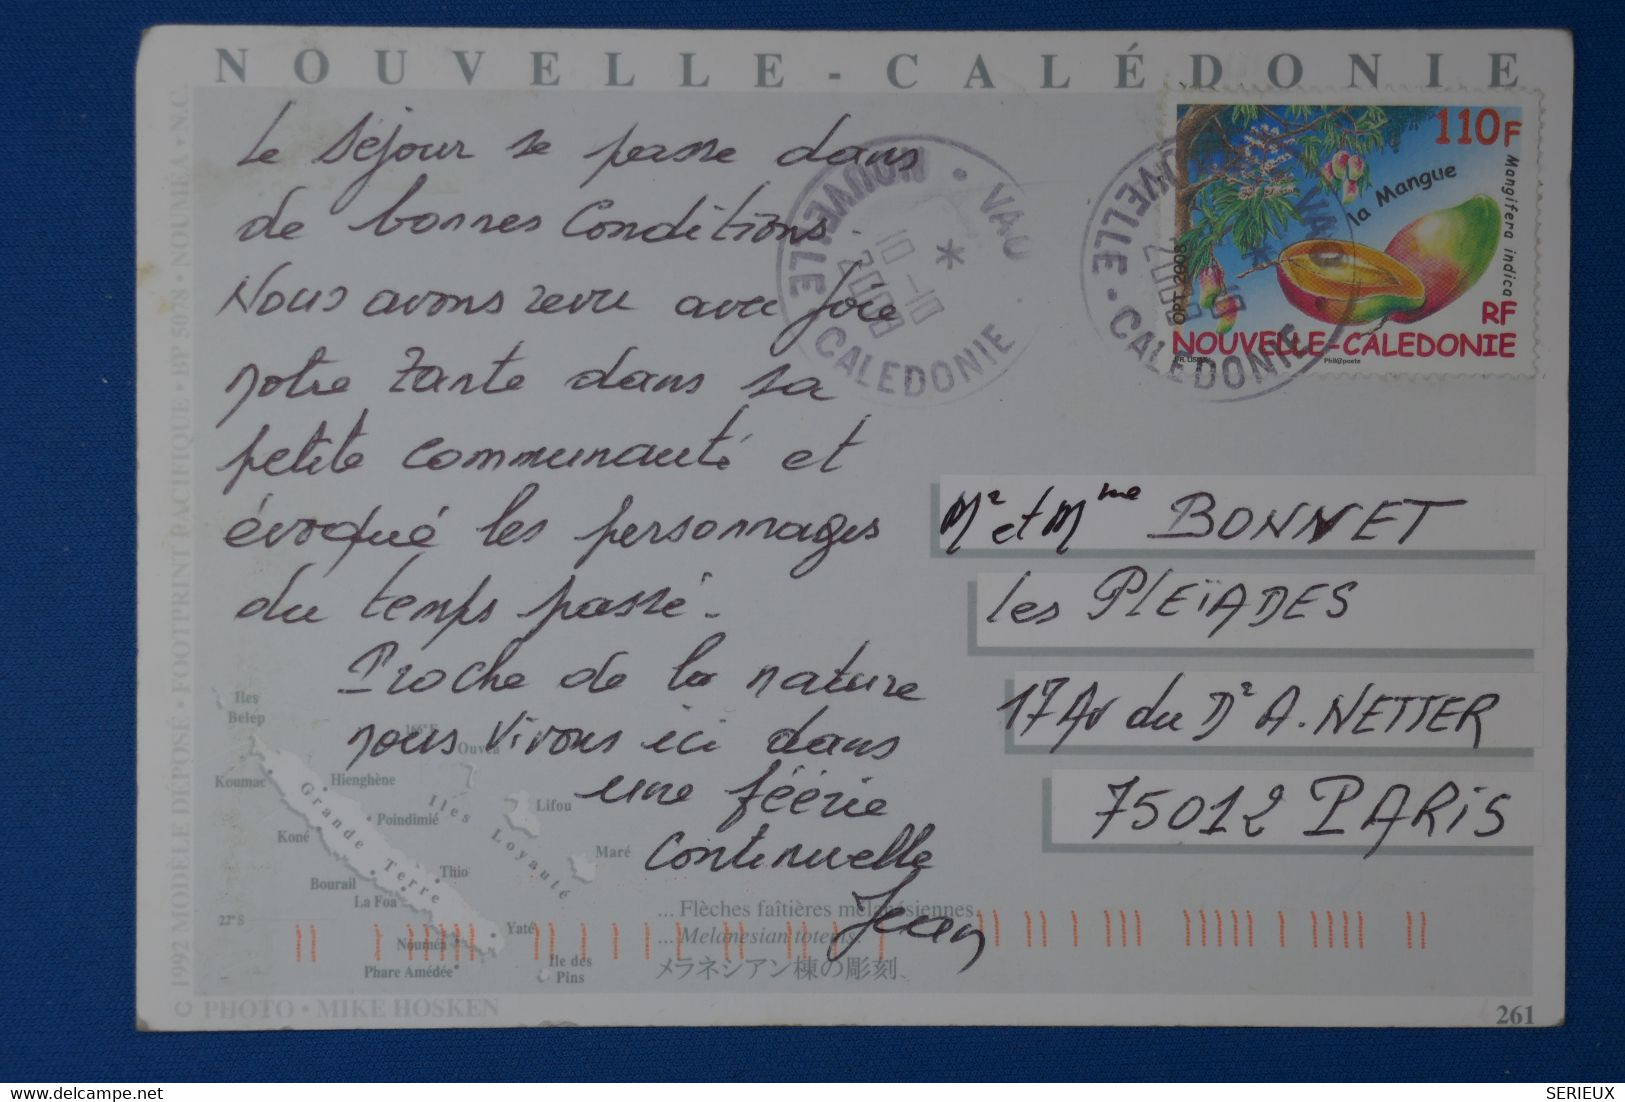 NOUVELLE-CALÉDONIE
Le séjour se passe dans
de bonnes conditions.
Nous avons revu avec joie
notre Tante dans sa
petite communauté et
évoqué les personnages
du temps passé.
Proche de la nature
nous vivons ici dans
une féérie
continuelle
Jean
110F
la Mangue
Mangifera indica
RF
NOUVELLE-CALEDONIE
OPT 2008
Phil@poste
VAO
NOUVELLE - CALEDONIE
VAO
NOUVELLE - CALEDONIE
Mr et Mme BONNET
les PLEïADES
17 Av du Dr A. NETTER
75012 PARiS
© 1992 MODÈLE DÉPOSÉ • FOOTPRINT PACIFIQUE • BP 5078 • NOUMÉA • N.C.
Iles
Belép
Ouvéa
Koumac
Hienghène
Iles Loyauté
Lifou
Grande Terre
Poindimié
Koné
Maré
Thio
Bourail
La Foa
22° S
Yaté
Nouméa
Phare Amédée
Ile des
Pins
... Flèches faîtières mélanésiennes.
... Melanesian totems.
メラネシアン棟の彫刻、
PHOTO • MIKE HOSKEN
261
SERIEUX